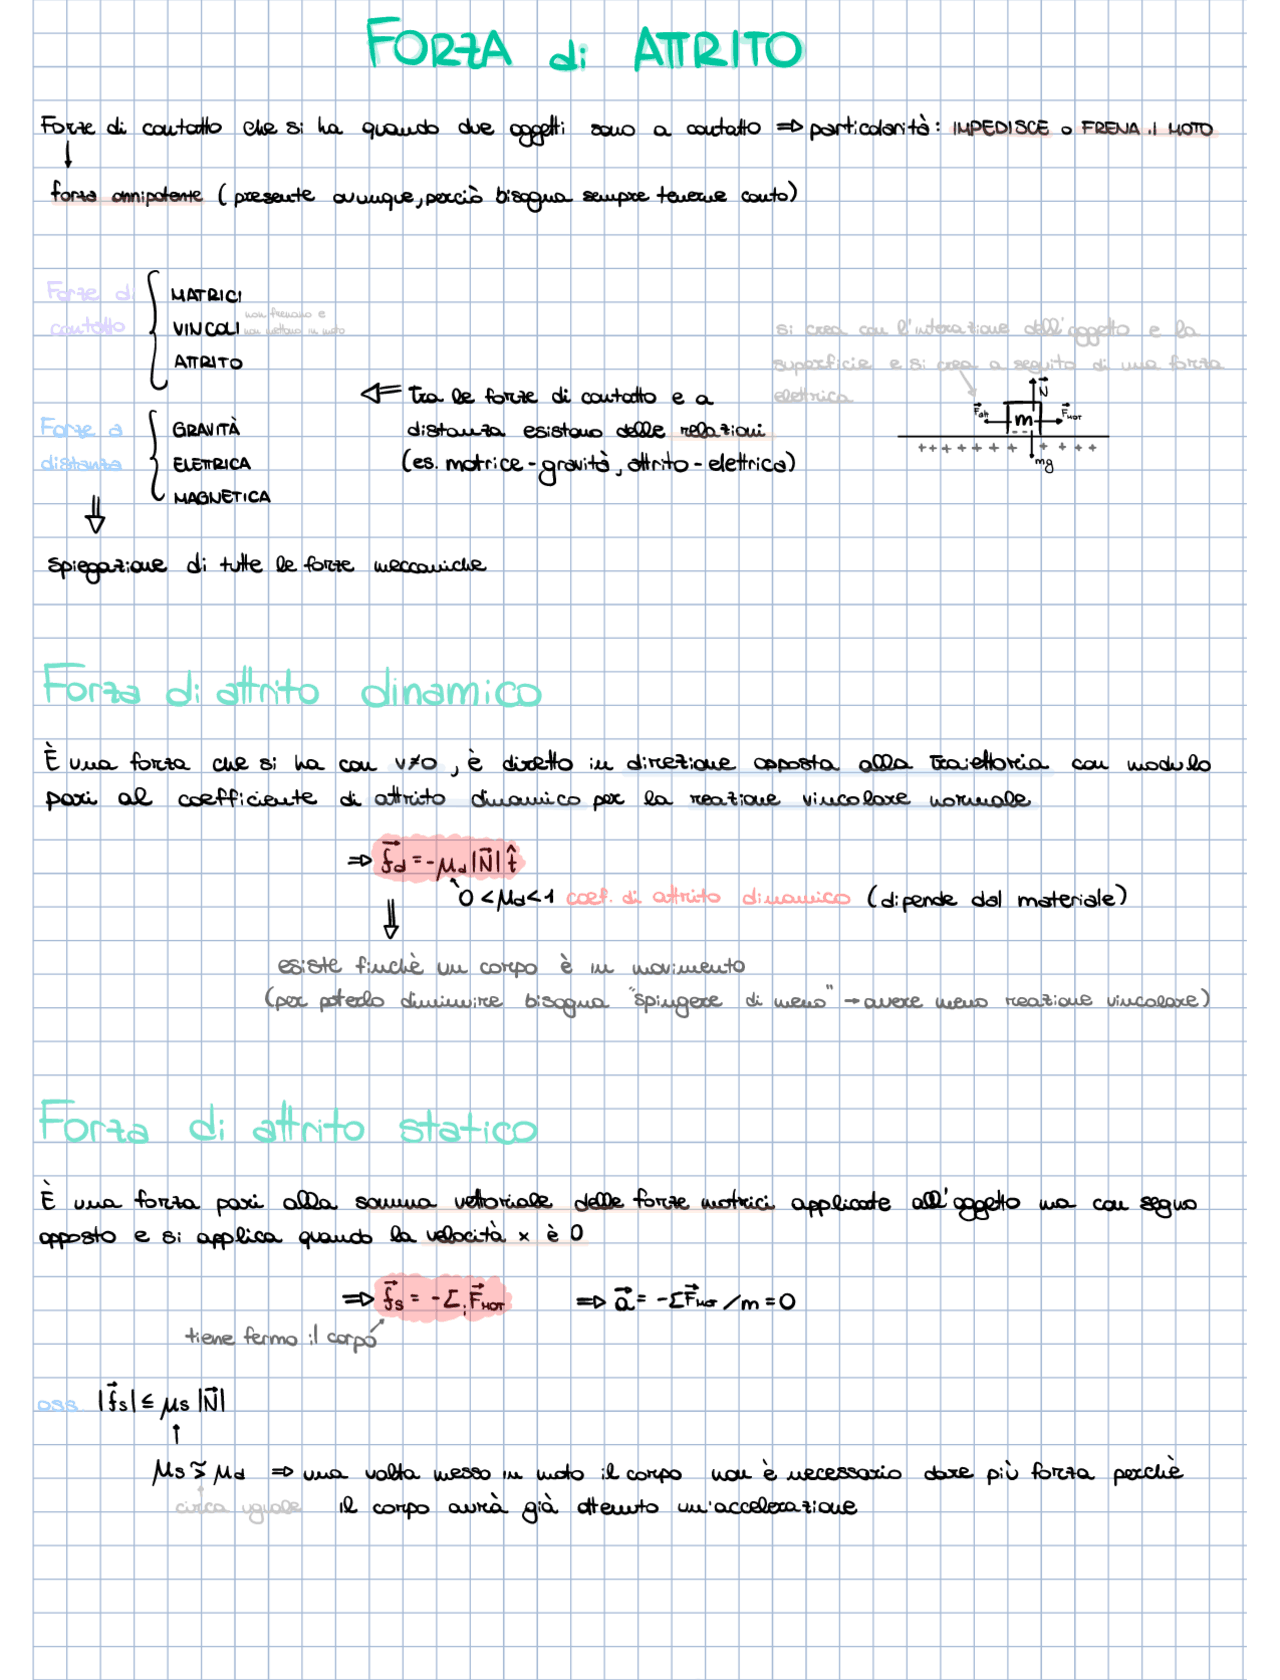 FORZA di ATTRITO
Forze di contatto che si ha quando due oggetti sono a contatto ⇒ particolarità: IMPEDISCE o FRENA il MOTO
↓
forza onnipotente (presente ovunque, perciò bisogna sempre tenerne conto)
Forze di contatto
MATRICI
VINCOLI non frenano e non mettono in moto
ATTRITO
Forze a distanza
GRAVITÀ
ELETTRICA
MAGNETICA
⇐ Tra le forze di contatto e a
distanza esistono delle relazioni
(es. motrice - gravità, attrito - elettrica)
si crea con l'interazione dell'oggetto e la
superficie e si crea a seguito di una forza
elettrica
N⃗
F⃗att m F⃗MOT
- - -
+ + + + + + + + + + +
mg
⇓
spiegazione di tutte le forze meccaniche
Forza di attrito dinamico
È una forza che si ha con v≠0, è diretto in direzione opposta alla traiettoria con modulo
pari al coefficiente di attrito dinamico per la reazione vincolare normale
⇒ f⃗d = -μd |N⃗| t̂
0 < μd < 1 coef. di attrito dinamico (dipende dal materiale)
⇓
esiste finchè un corpo è in movimento
(per poterlo diminuire bisogna "spingere di meno" → avere meno reazione vincolare)
Forza di attrito statico
È una forza pari alla somma vettoriale delle forze motrici applicate all'oggeto ma con segno
opposto e si applica quando la velocità x è 0
⇒ f⃗s = -Σi F⃗MOT ⇒ a⃗ = -ΣF⃗MOT / m = 0
tiene fermo il corpo
oss |f⃗s| ≤ μs |N⃗|
↑
μs ≳ μd ⇒ una volta messo in moto il corpo non è necessario dare più forza perchè
circa uguale il corpo avrà già ottenuto un'accelerazione